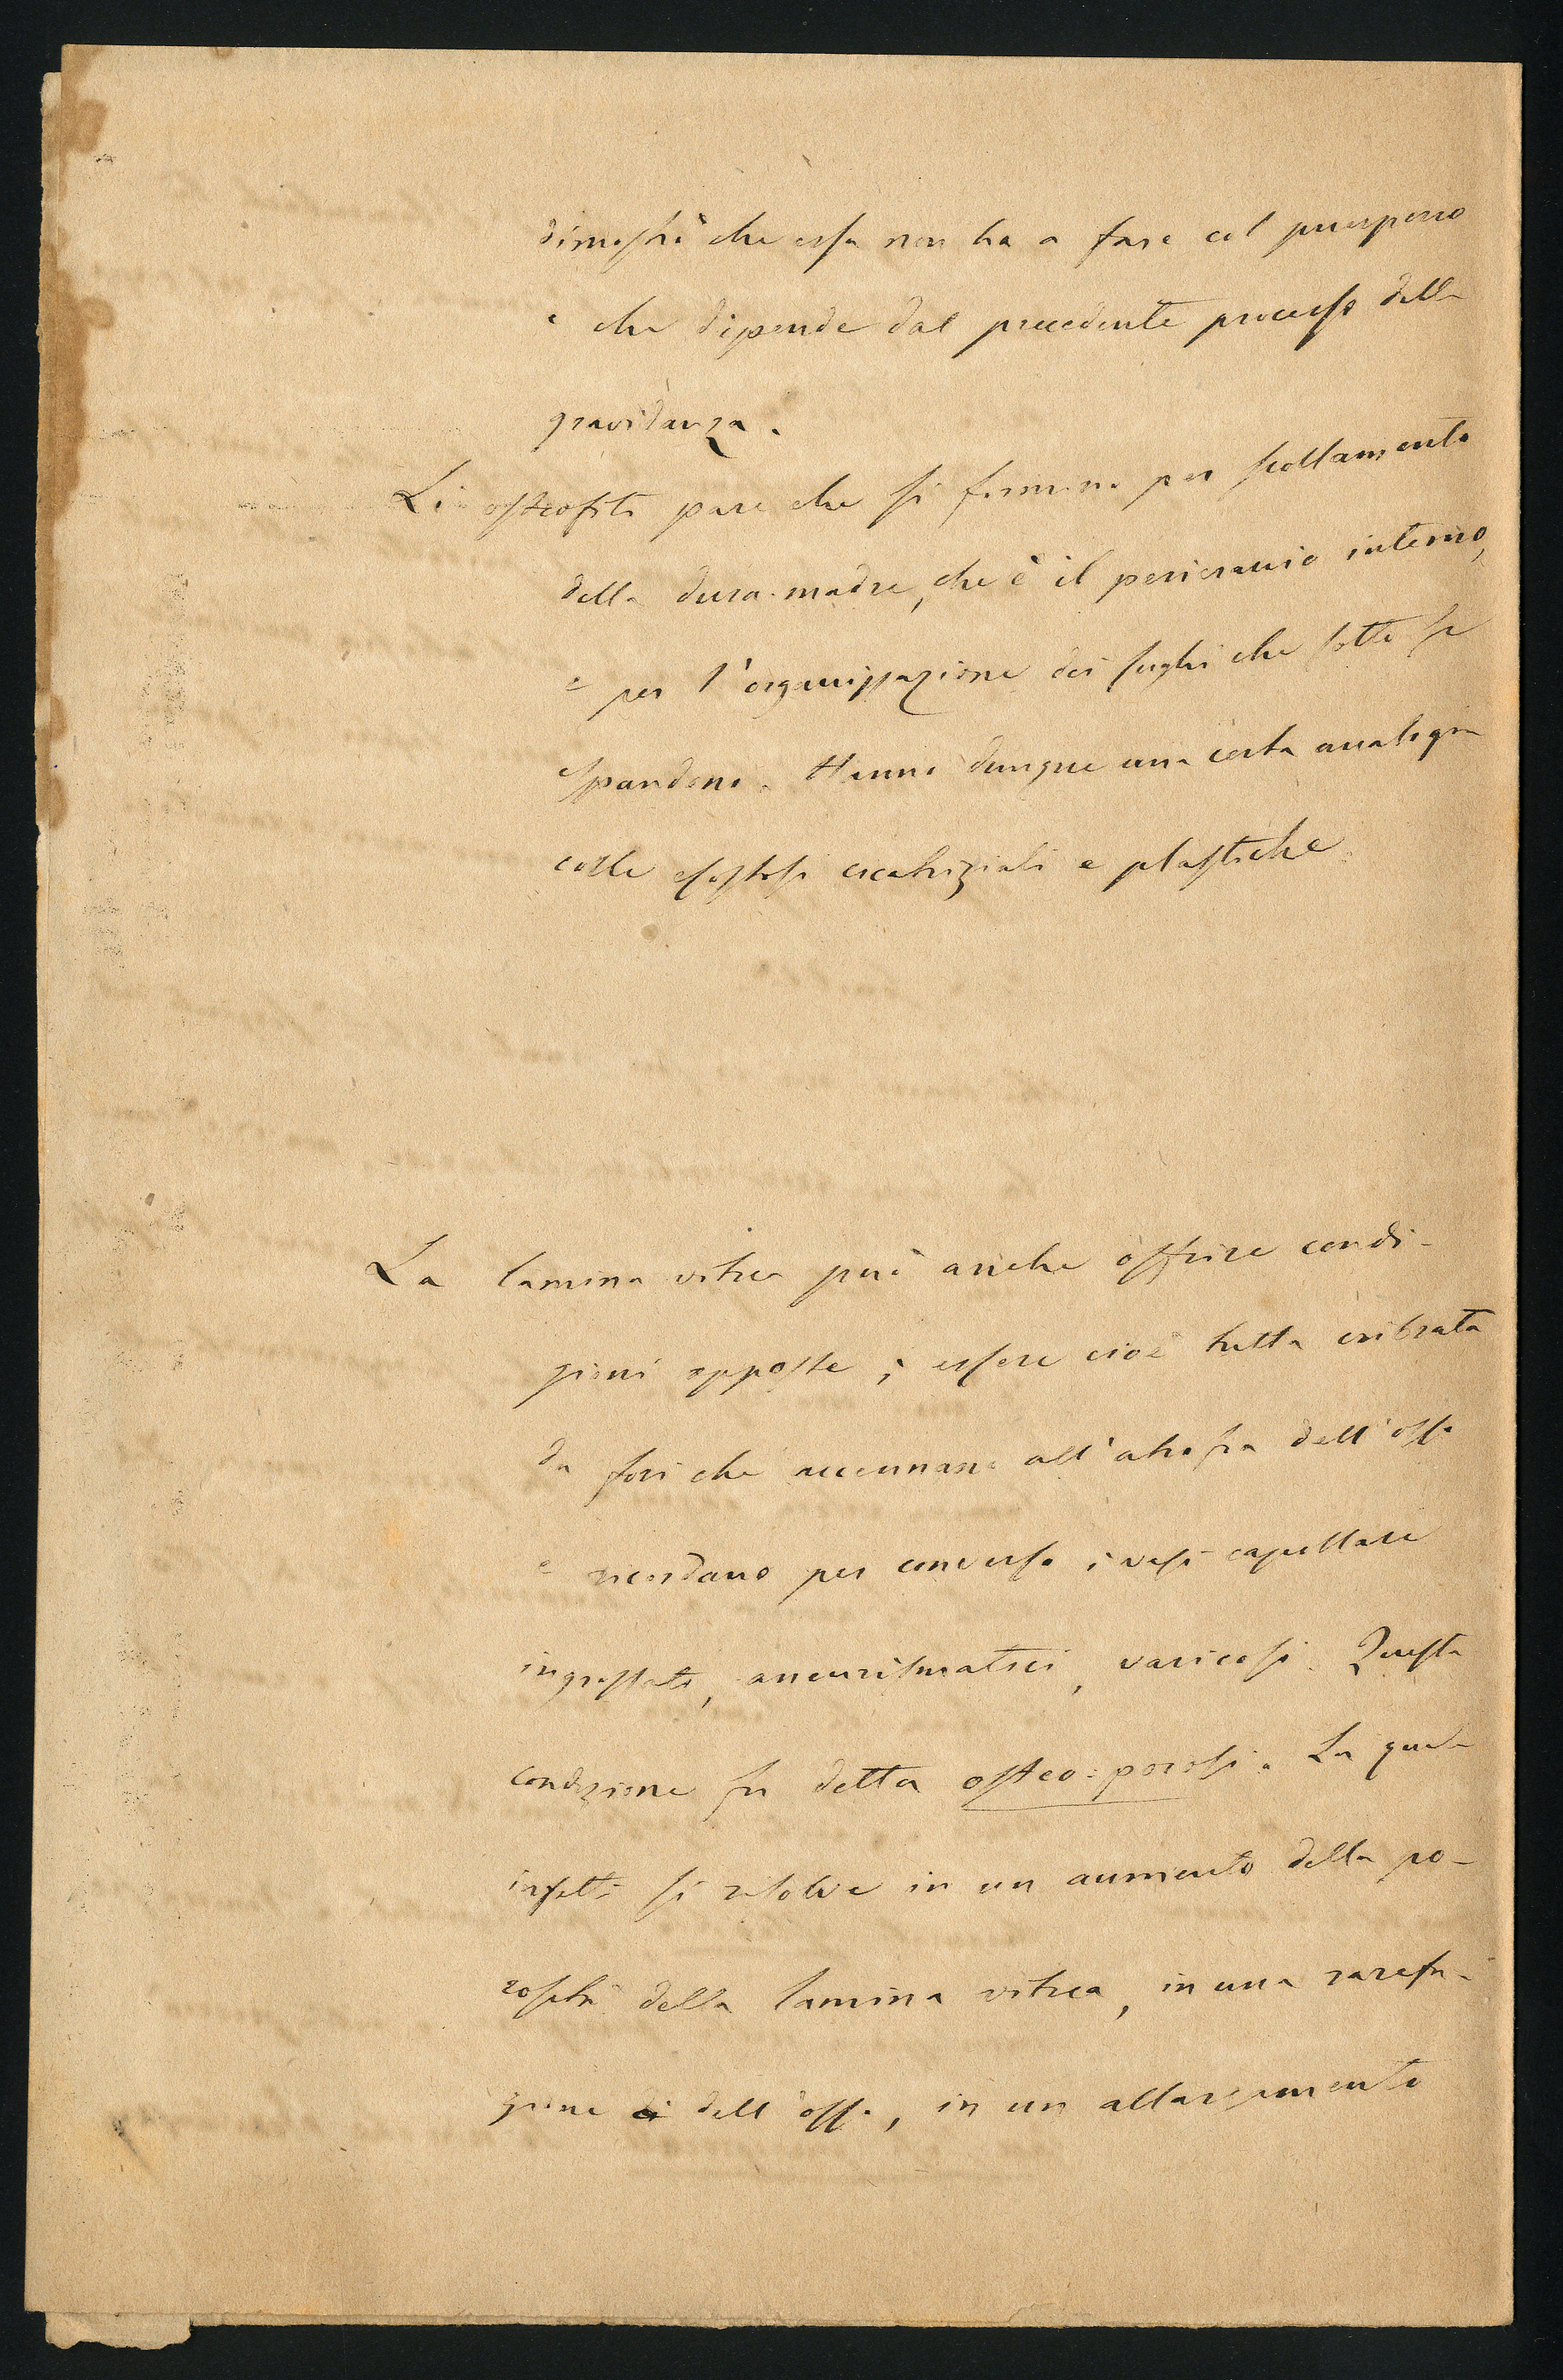 dimostrò che essa non ha a fare col puerperio
e che dipende dal precedente processo della
gravidanza.
Li osteofiti pare che si formino per scollamento
della dura-madre, che è il pericranio interno,
e per l'organizzazione dei sughi che sotto si
spandono. Hanno dunque una certa analogia
colle esostosi cicatriziali e plastiche.
La lamina vitrea può anche offrire condi-
zioni opposte; essere cioè tutta cribrata
da fori che accennano all'atrofia dell'osso
e ricordano per converso i vasi capillari
ingrossati, aneurismatici, varicosi. Questa
condizione fu detta osteo-porosi. La quale
infatti si risolve in un aumento della po-
rosità della lamina vitrea, in una rarefa-
zione di dell'osso, in un allargamento